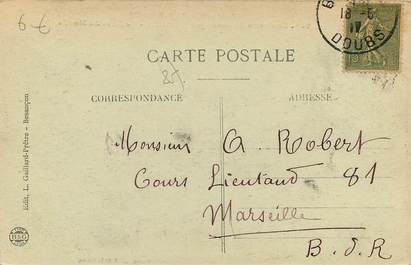 6-6
18-5
17
DOUBS
CARTE POSTALE
CORRESPONDANCE
ADRESSE
Monsieur A. Robert
Cours Lieutaud 81
Marseille
B. d. R
Édit. L. Gaillard-Prêtre - Besançon